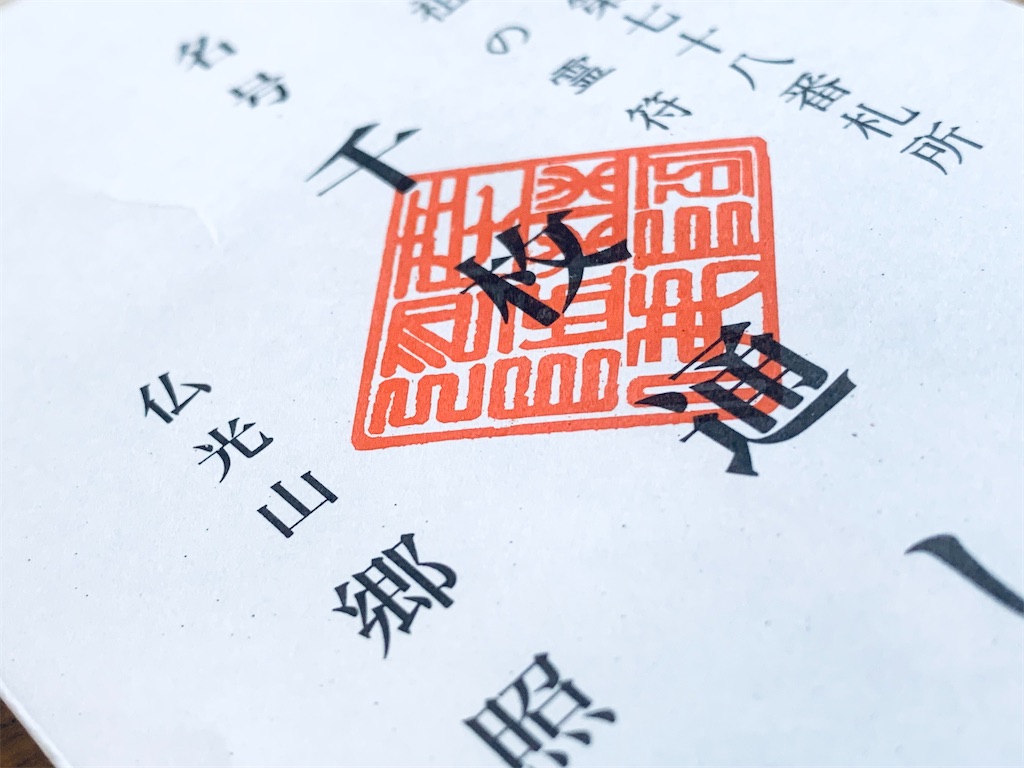 第七十八番札所
祖の霊符
名号 千枚通し
仏光山 郷照